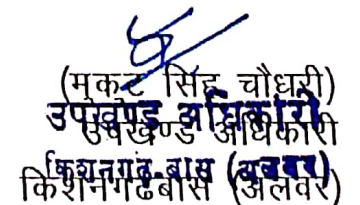 (मुकट सिंह चौधरी)
उपखण्ड अधिकारी
उपखण्ड अधिकारी
किशनगढ़-बास (अलवर)
किशनगढबास (अलवर)